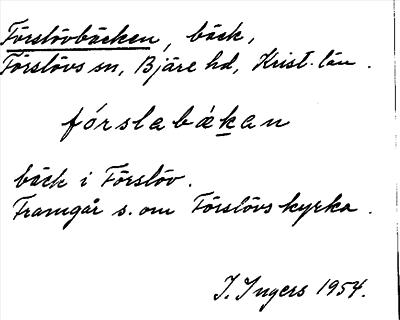 Förslövbäcken, bäck,
Förslövs sn, Bjäre hd, Krist. län.
fórslabækan
bäck i Förslöv.
Framgår s. om Förslövs kyrka.
I. Ingers 1954.